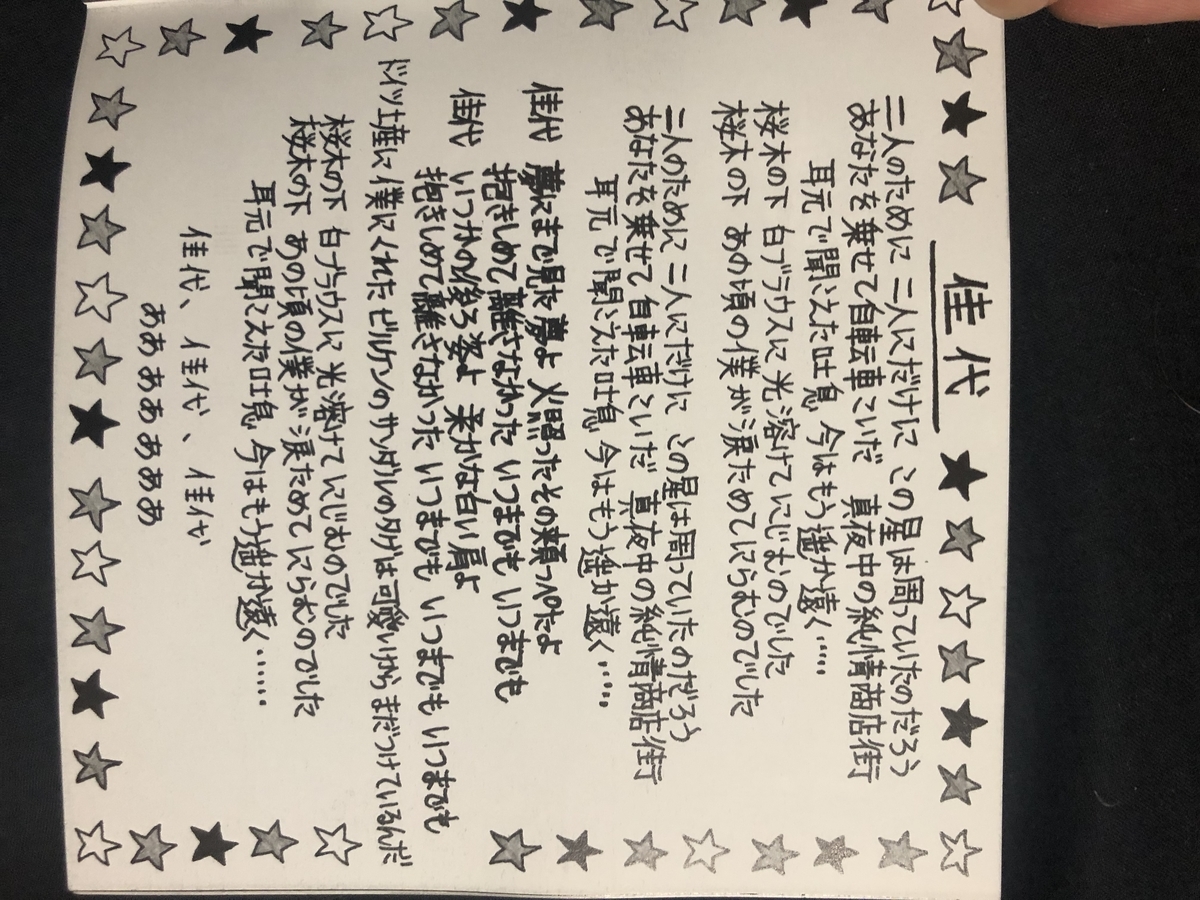 佳代
二人のために 二人にだけに この星は周っていたのだろう
あなたを乗せて自転車こいだ 真夜中の純情商店街
耳元で聞こえた吐息 今はもう遙か遠く‥‥
桜木の下 白ブラウスに光溶けてにじむのでした
桜木の下 あの頃の僕が涙ためてにらむのでした
二人のために 二人にだけに この星は周っていたのだろう
あなたを乗せて自転車こいだ 真夜中の純情商店街
耳元で聞こえた吐息 今はもう遙か遠く‥‥
佳代 夢にまで見た夢よ 火照ったその頬っぺたよ
抱きしめて離さなかった いつまでも いつまでも
佳代 いつかの後ろ姿よ 柔かな白い肩よ
抱きしめて離さなかった いつまでも いつまでも いつまでも
ドイツ土産に僕にくれたビルケンのサンダルのタグは可愛いからまだつけているんだ
桜木の下 白ブラウスに光溶けてにじむのでした
桜木の下 あの頃の僕が涙ためてにらむのでした
耳元で聞こえた吐息 今はもう遙か遠く‥‥‥
佳代、佳代、佳代
ああ ああ ああ ああ